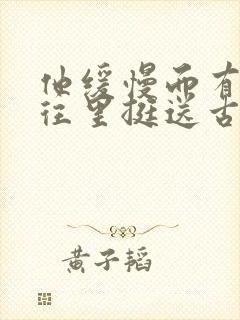 他缓慢而有
往里挺送古
黄子韬